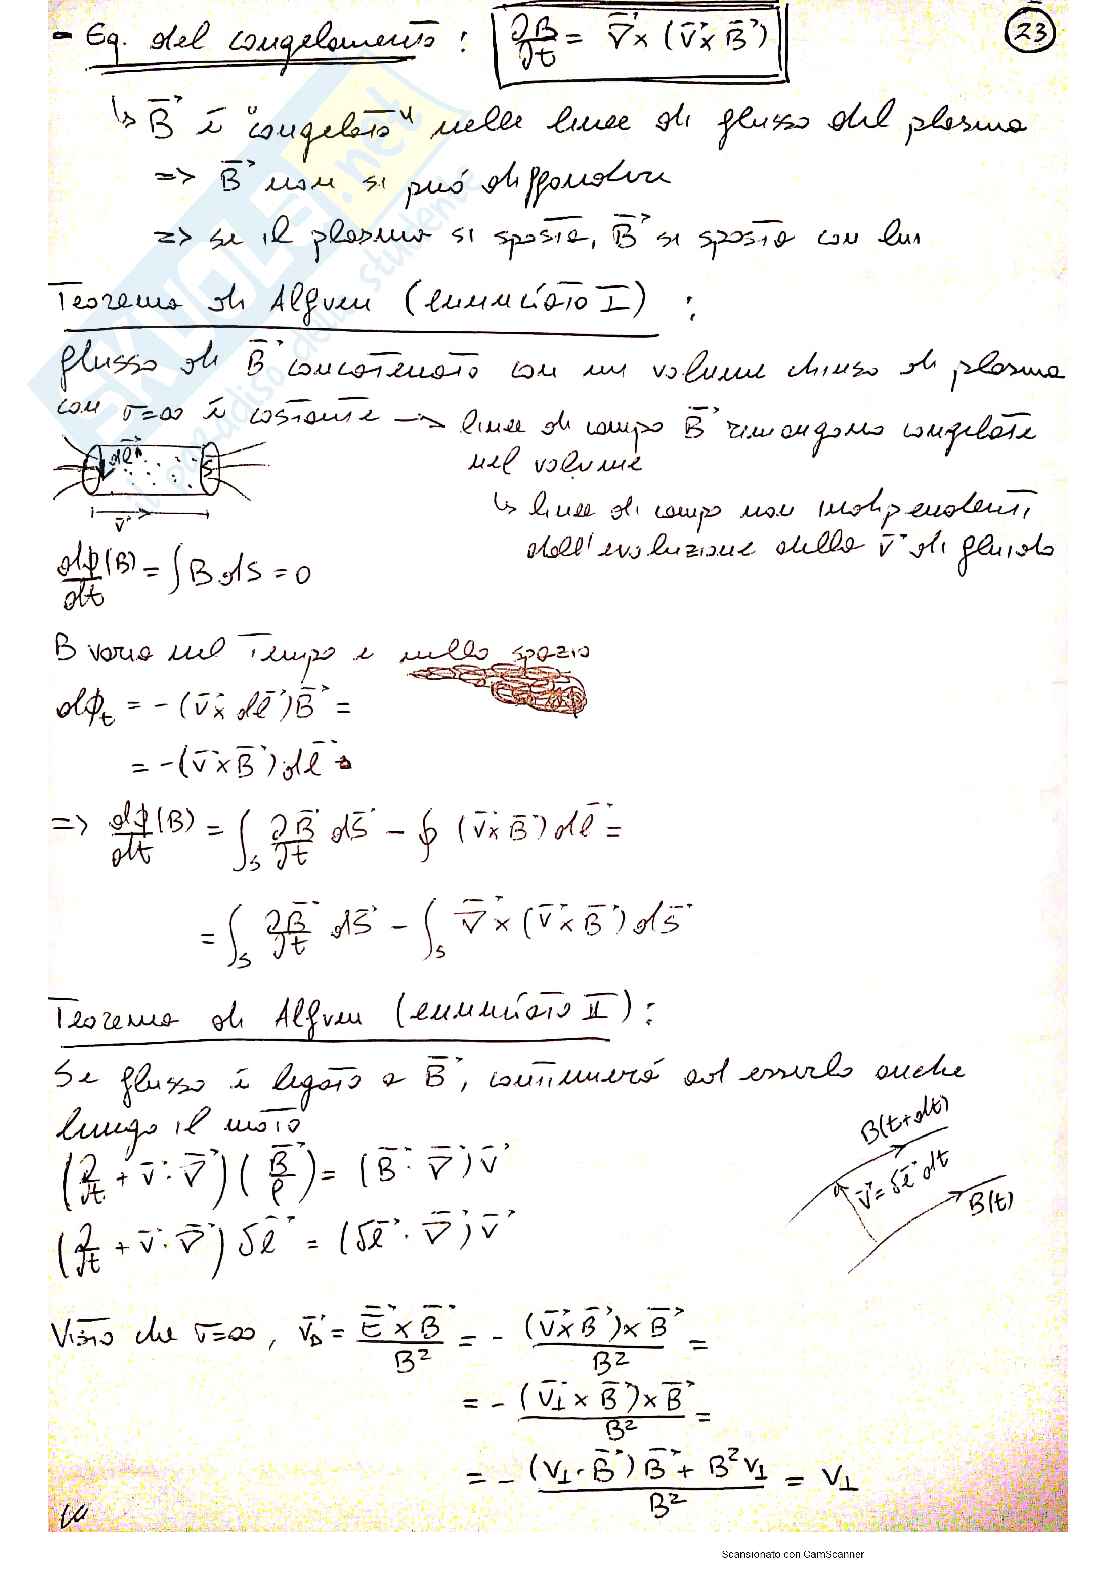 - Eq. del congelamento : ∂B/∂t = ∇⃗ x (v⃗ x B⃗)
23
↳ B⃗ è "congelato" nelle linee di flusso del plasma
=> B⃗ non si può diffondere
=> se il plasma si sposta, B⃗ si sposta con lui
Teorema di Alfven (enunciato I) :
flusso di B⃗ concatenato con un volume chiuso di plasma
con σ=∞ è costante → linee di campo B⃗ rimangono congelate
nel volume
↳ linee di campo non indipendenti
dall'evoluzione della v⃗ di fluido
dl⃗
S
v⃗
dϕ(B)/dt = ∫ B dS = 0
B varia nel tempo e nello spazio
dϕ_t = - (v⃗ x dl⃗) B⃗ =
= - (v⃗ x B⃗) dl⃗
=> dϕ(B)/dt = ∫_S ∂B⃗/∂t dS⃗ - ∮ (v⃗ x B⃗) dl⃗ =
= ∫_S ∂B⃗/∂t dS⃗ - ∫_S ∇⃗ x (v⃗ x B⃗) dS⃗
Teorema di Alfven (enunciato II) :
Se flusso è legato a B⃗, continuerà ad esserlo anche
lungo il moto
B(t+dt)
v⃗ = δl⃗ dt
B(t)
(∂/∂t + v⃗ · ∇⃗) (B⃗/ρ) = (B⃗ · ∇⃗) v⃗
(∂/∂t + v⃗ · ∇⃗) δl⃗ = (δl⃗ · ∇⃗) v⃗
Visto che σ=∞, v⃗_D = E⃗ x B⃗ / B² = - (v⃗ x B⃗) x B⃗ / B² =
= - (v⃗⊥ x B⃗) x B⃗ / B² =
= - (v⊥ · B⃗) B⃗ + B² v⊥ / B² = v⊥
Scansionato con CamScanner
SKUOLA.net
il paradiso dello studente